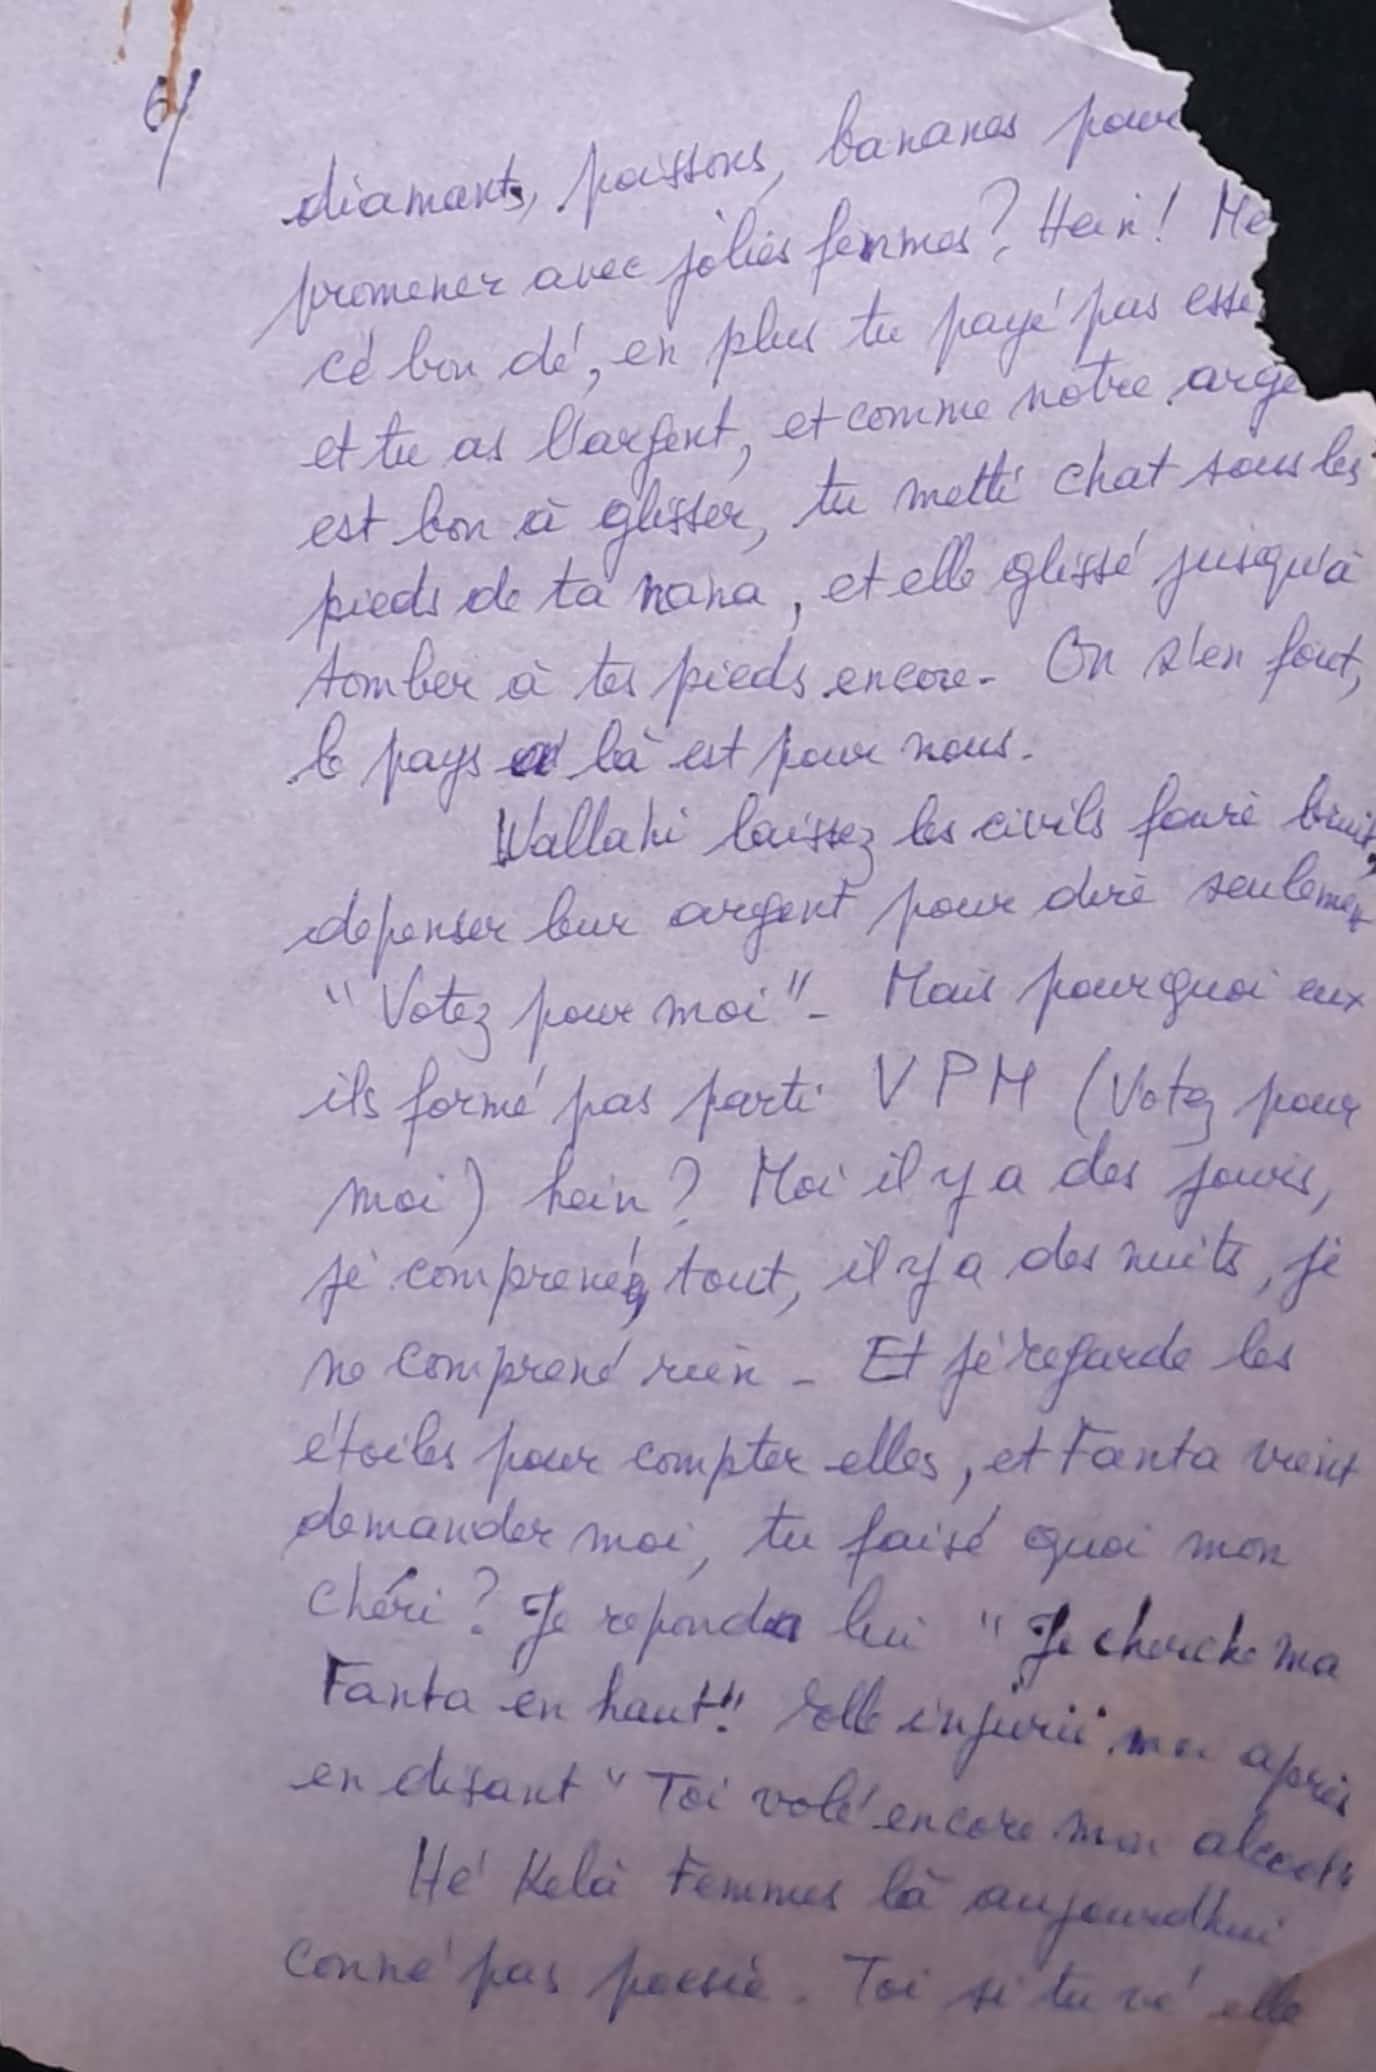 6/
diamants, poissons, bananes pour
promener avec jolies femmes? Hein! Mé
cé bon dé, en plus tu payé pas esse
et tu as l'argent, et comme notre arge
est bon à glisser, tu metté chat sous les
pieds de ta nana, et elle glissé jusqu'à
tomber à tes pieds encore. On s'en fout,
le pays là est pour nous.
Wallahi laissez les civils fouré bruit,
depenser leur argent pour diré seulemen
"Votez pour moi" - Mais pourquoi eux
ils formé pas parti VPM (Votez pour
moi) hein? Moi il y a des jours,
jé comprené tout, il y a des nuits, jé
ne comprené rien - Et jé regarde les
étoiles pour compter elles, et Fanta vient
demander moi, tu faisé quoi mon
chéri? Je reponda lui "Je cherche ma
Fanta en haut!" Elle injurié moi après
en disant "Toi volé encore mon alcool"
Hé Kela Femmes là aujourdhui
conné pas poesie. Toi si tu vé elle